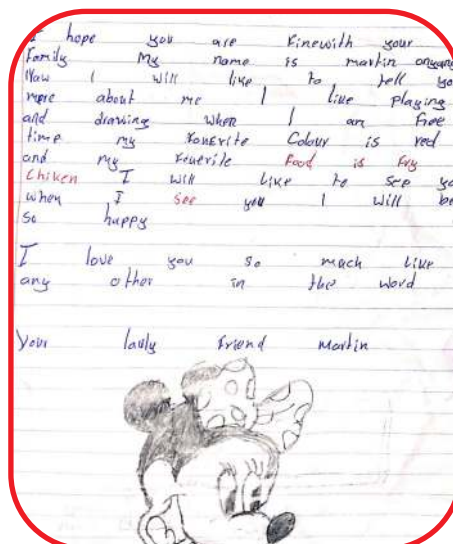 I hope you are Finewith your
Family My name is martin
Naw I will like to tell yo
more about me I live playing
and drawing when I am Free
time my Fouerite Colour is red
and my Fouerite Food is Fry
Chiken I will like to see yo
when I see you I will be
so happy
I love you so much like
any other in the word
Your lavly Friend Martin